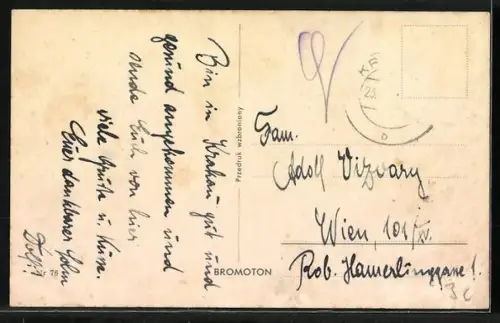 Bin in Krakau gut und
gesund angekommen und
sende Euch von hier
viele Grüße u. Küsse.
Euer dankbarer Sohn
Dolfi
Przedruk wzbroniony
BROMOTON
Fam.
Adolf Vizvary
Wien, 101/XV.
Rob. Hamerlinggasse 1.